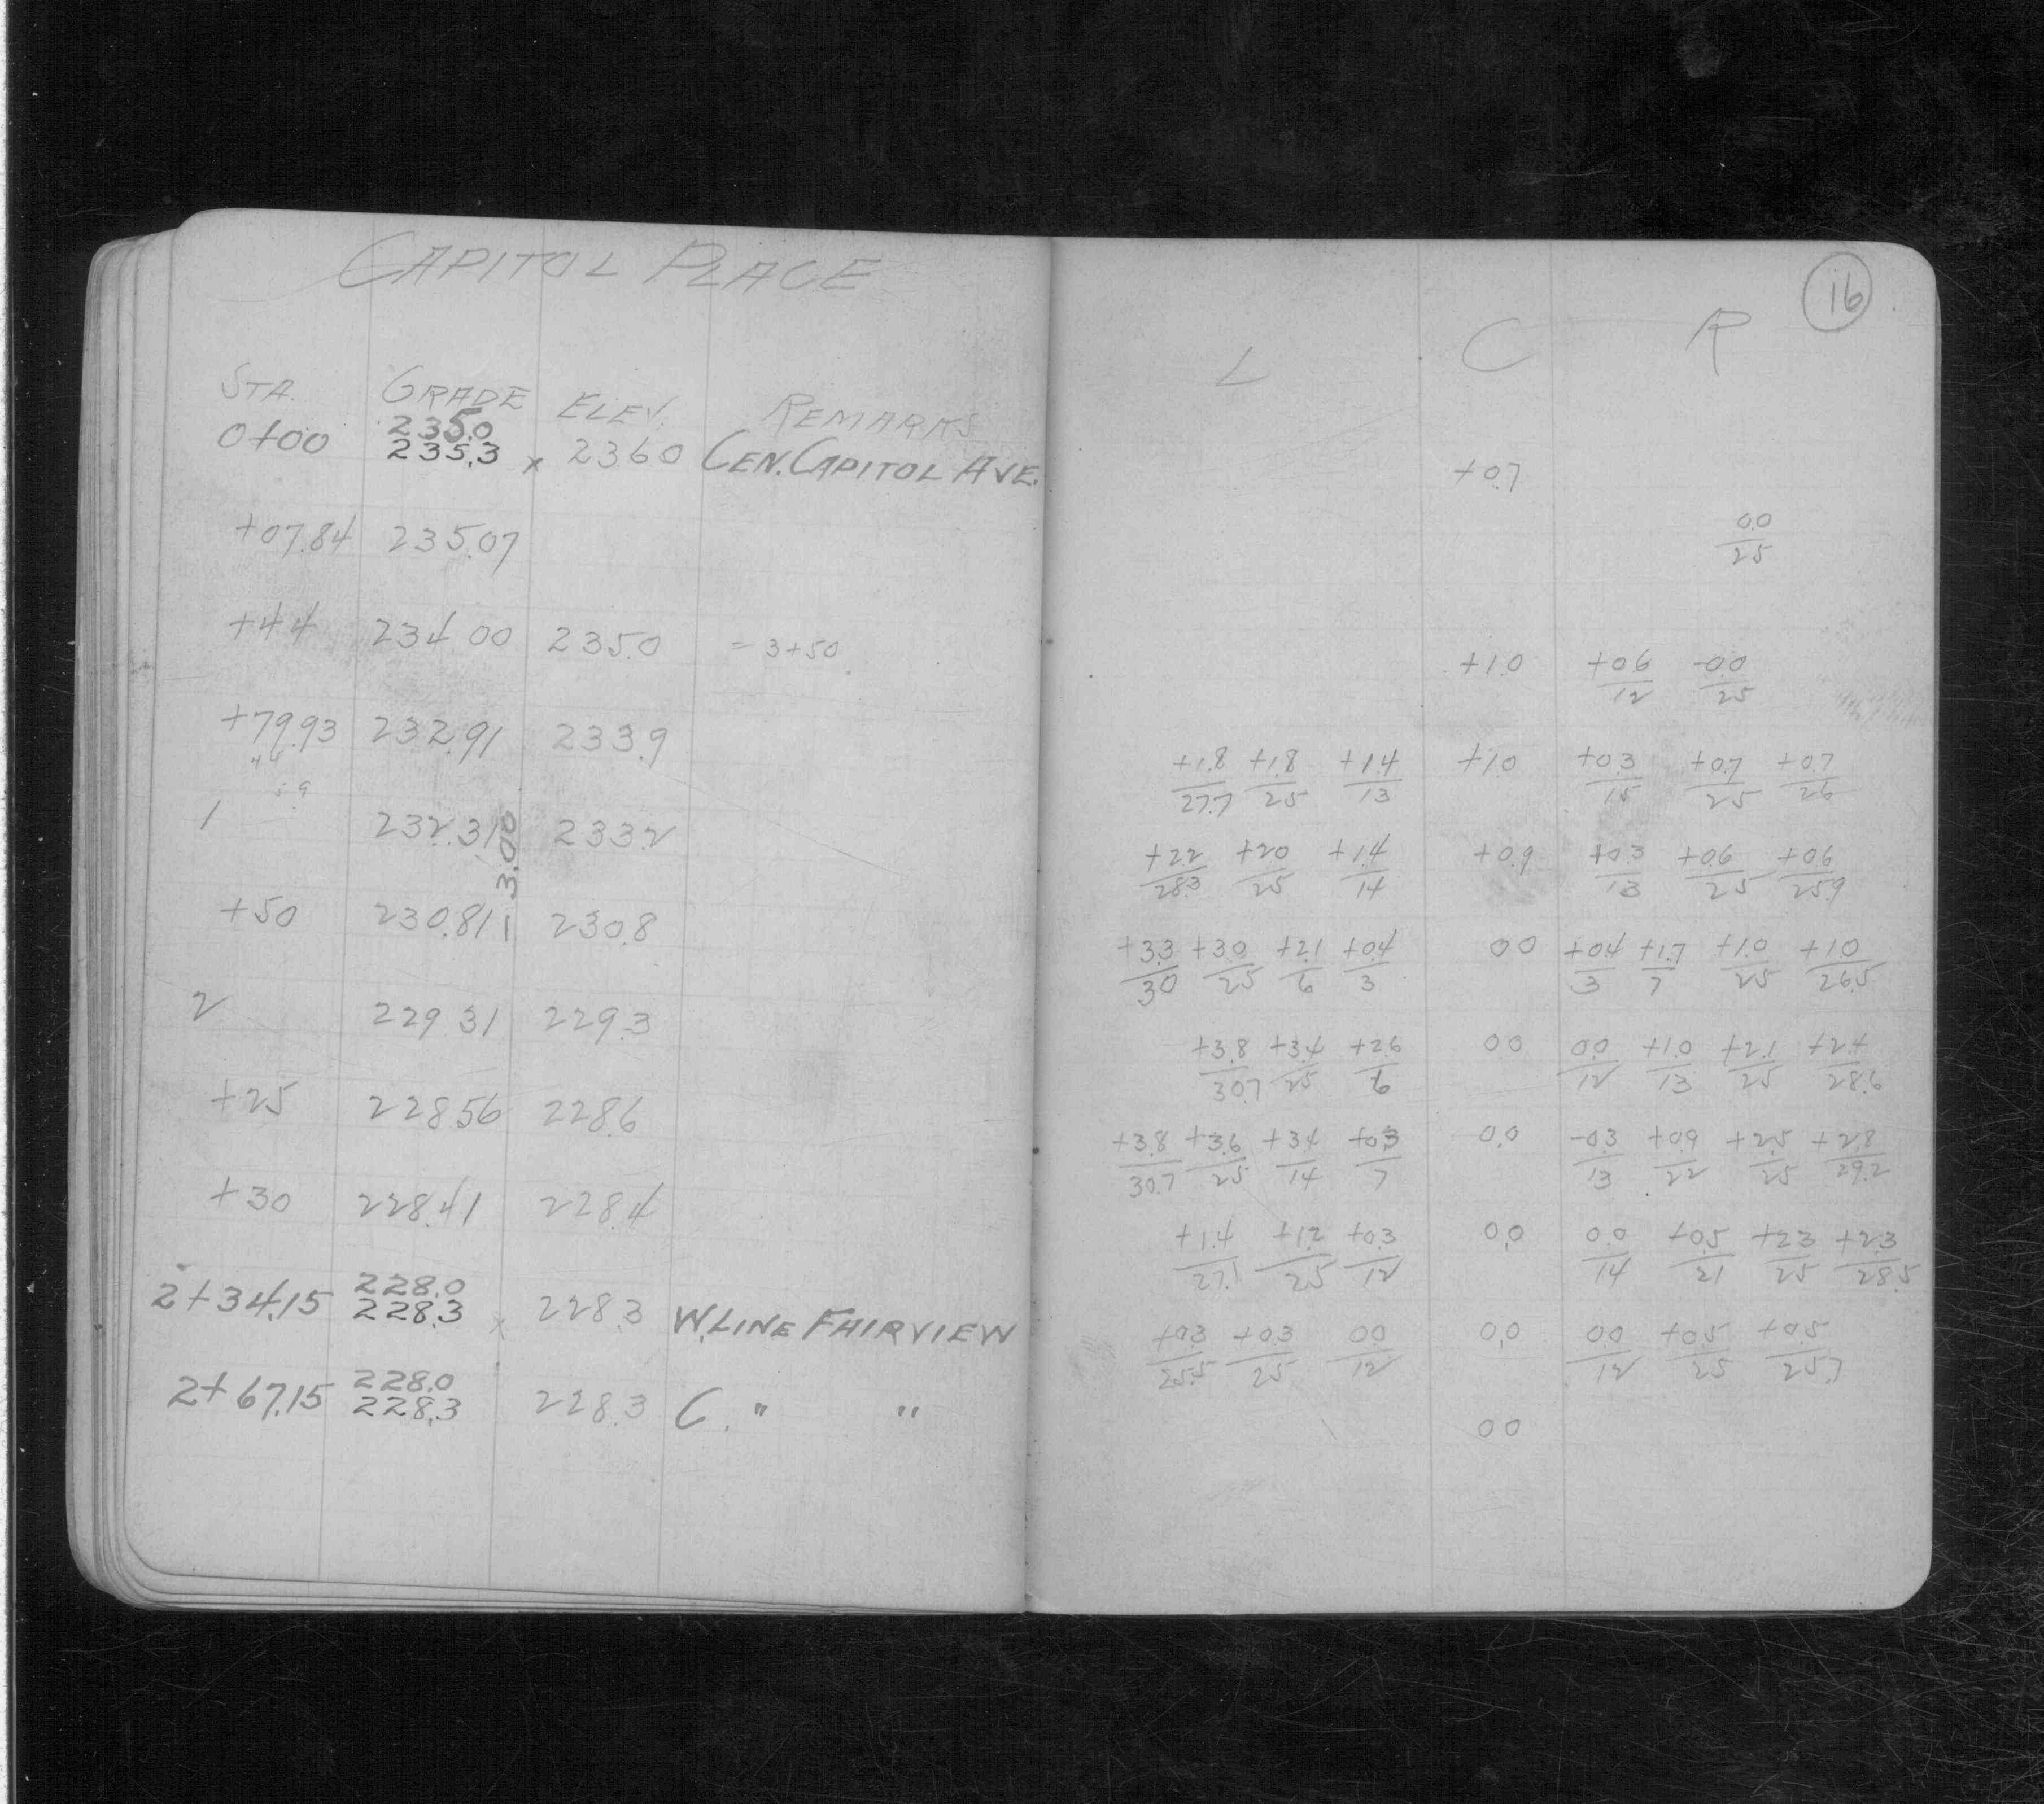 CAPITOL PLACE
STA. GRADE ELEV. REMARKS
235.0
0+00 235.3 x 236.0 CEN. CAPITOL AVE.
+07.84 235.07
+44 234.00 235.0 = 3+50
+79.93 232.91 233.9
1 232.31 233.2
3.00
+50 230.81 230.8
2 229.31 229.3
+25 228.56 228.6
+30 228.41 228.4
228.0
2+34.15 228.3 x 228.3 W. LINE FAIRVIEW
228.0
2+67.15 228.3 228.3 C. " "
16
L C R
+0.7
0.0
25
+1.0 +0.6 -0.0
12 25
+1.8 +1.8 +1.4 +1.0 +0.3 +0.7 +0.7
27.7 25 13 15 25 26
+2.2 +2.0 +1.4 +0.9 +0.3 +0.6 +0.6
28.3 25 14 13 25 25.9
+3.3 +3.0 +2.1 +0.4 0.0 +0.4 +1.7 +1.0 +1.0
30 25 6 3 3 7 25 26.5
+3.8 +3.4 +2.6 0.0 0.0 +1.0 +2.1 +2.4
30.7 25 6 12 13 25 28.6
+3.8 +3.6 +3.4 +0.3 0.0 -0.3 +0.9 +2.5 +2.8
30.7 25 14 7 13 22 25 29.2
+1.4 +1.2 +0.3 0.0 0.0 +0.5 +2.3 +2.3
27.1 25 12 14 21 25 28.5
+0.3 +0.3 0.0 0.0 0.0 +0.5 +0.5
25.5 25 12 12 25 25.7
0.0